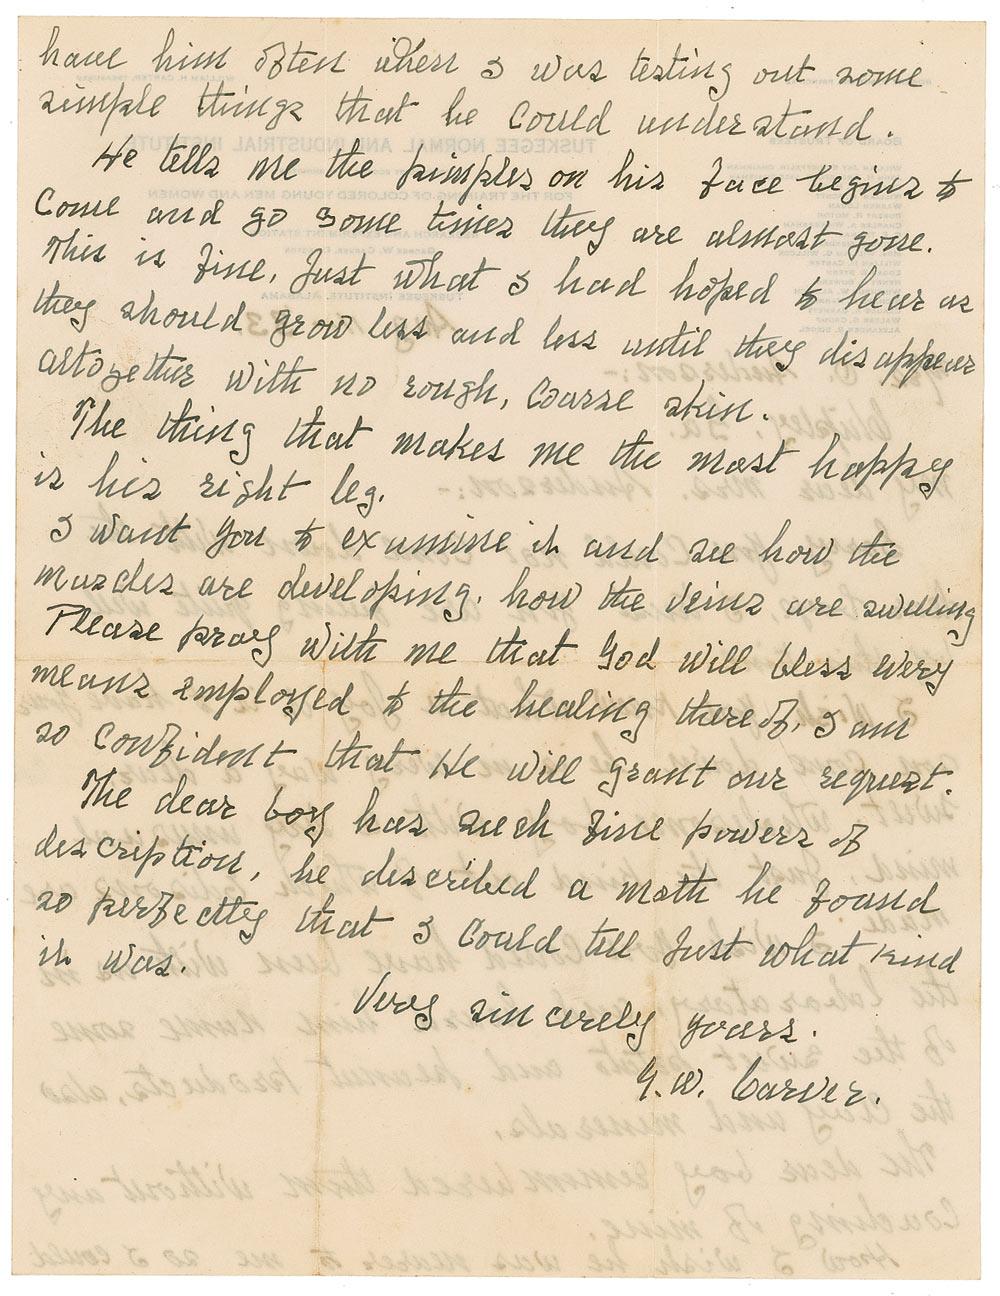 have him often when I was testing out some
simple things that he could understand.
He tells me the pimples on his face begins to
come and go some times they are almost gone.
This is fine, just what I had hoped to hear as
they should grow less and less until they disappear
altogether with no rough, coarse skin.
The thing that makes me the most happy
is his right leg.
I want you to examine it and see how the
muscles are developing, how the veins are swelling
Please pray with me that God will bless every
means employed to the healing thereof, I am
so confident that He will grant our request.
The dear boy has such fine powers of
description, he described a moth he found
so perfectly that I could tell just what kind
it was.
Very sincerely yours.
G. W. Carver.